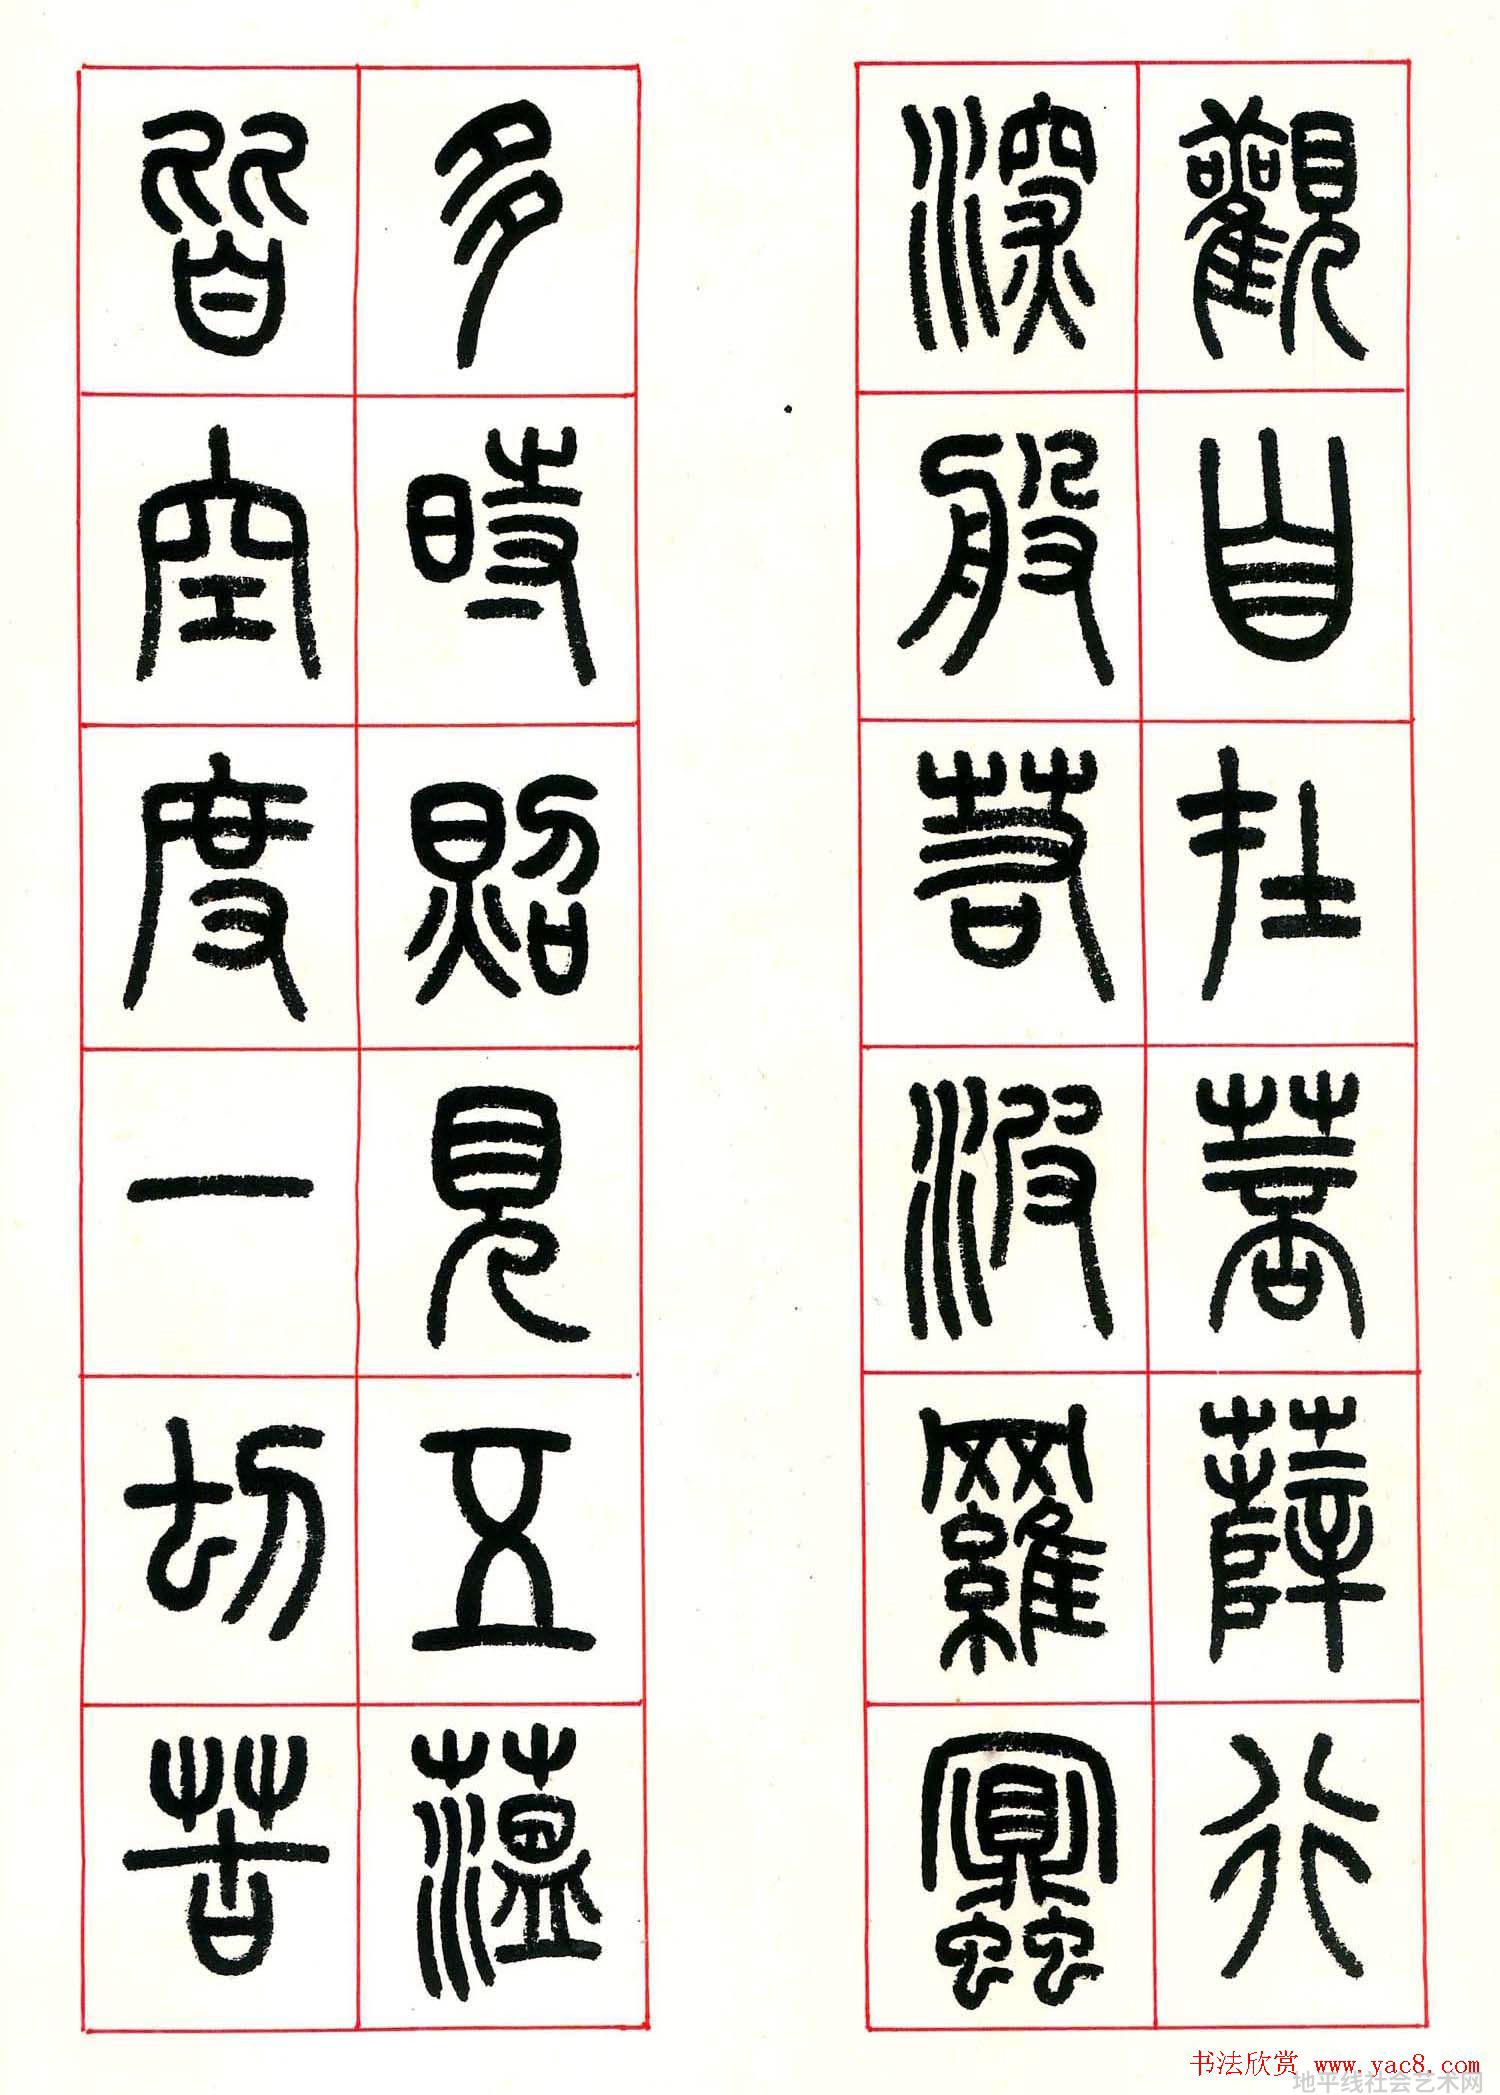 觀自在菩薩行
深般若波羅蜜
多時照見五蘊
皆空度一切苦
书法欣赏 www.yac8.com
地平线社会艺术网